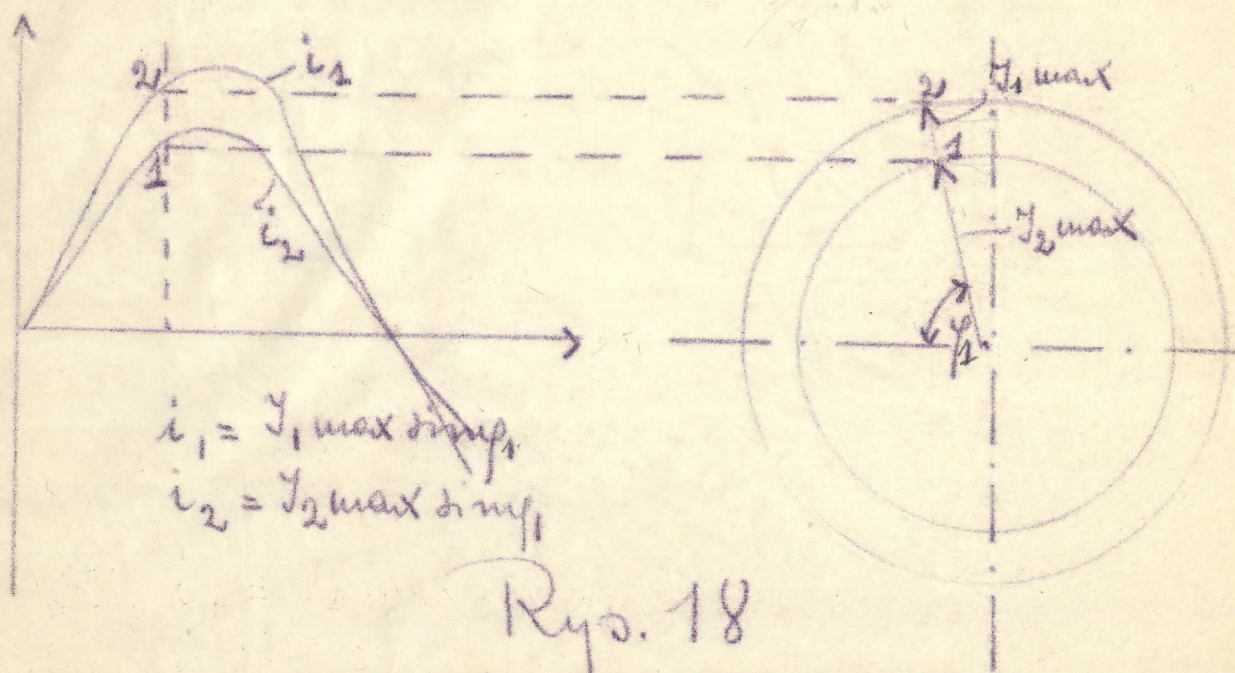 2 i₁
1
i₂
2 J₁ max
1
J₂ max
φ₁
i₁ = J₁ max sinφ₁
i₂ = J₂ max sinφ₁
Rys. 18